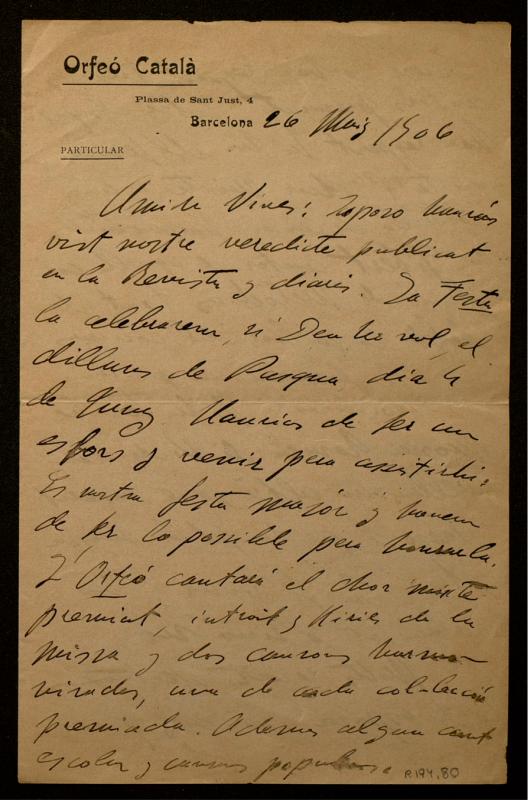 Orfeó Català
Plassa de Sant Just, 4
Barcelona 26 Maig 1906
PARTICULAR
Amich Vives: suposo hauràs
vist nostre veredicte publicat
en la Revista y diaris. La Festa
la celebrarem, si Deu ho vol, el
dilluns de Pasqua dia 4
de Juny. Hauries de fer un
esfors y venir pera assistirhi.
Es nostra festa major y havem
de fer lo possible pera honrarla.
L'Orfeó cantará el chor mixte
premiat, introit y Kiries de la
missa y dos cansons harmo-
nisades, una de cada col-lecció
premiada. Ademes algun cant
escolar y cansons populars.
R194,80